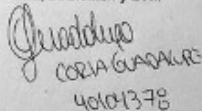 Guadalupe
CORIA GUADALUPE
40101378